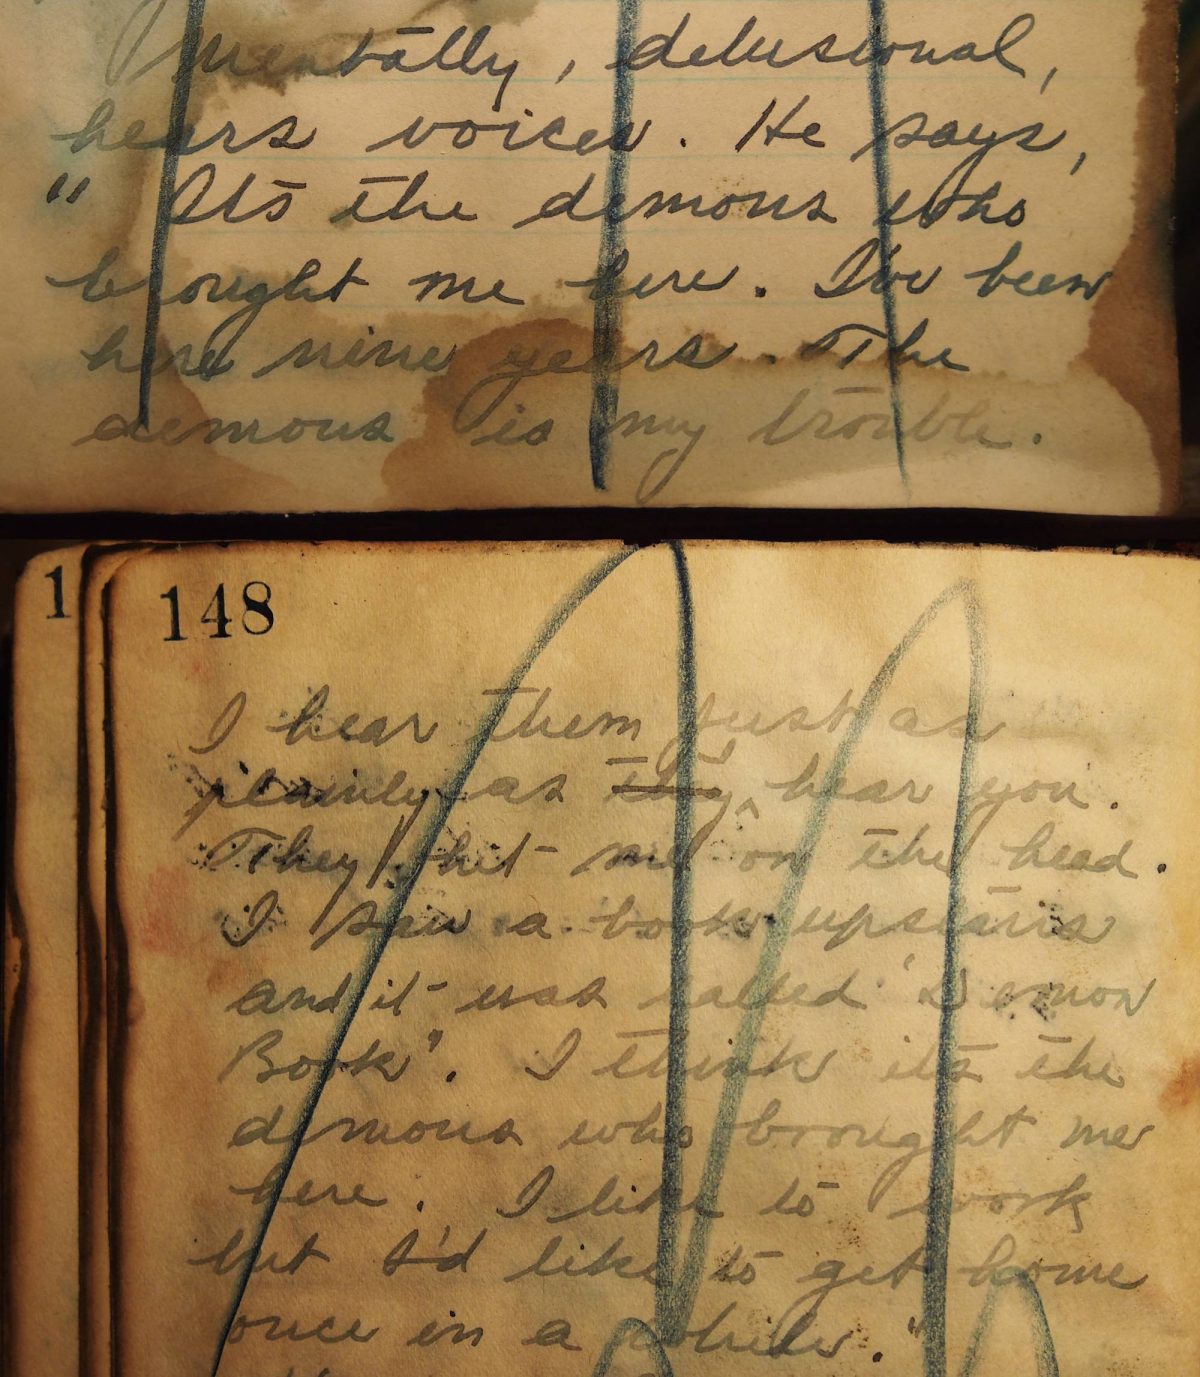 Mentally, delusional,
hears voices. He says,
"Its the demons who
brought me here. I've been
here nine years. The
demons is my trouble.
1
148
I hear them just as
plainly as they I hear you.
They hit me on the head.
I saw a book upstairs
and it was called 'Demon
Book". I think its the
demons who brought me
here. I like to work
but I'd like to get home
once in a while."